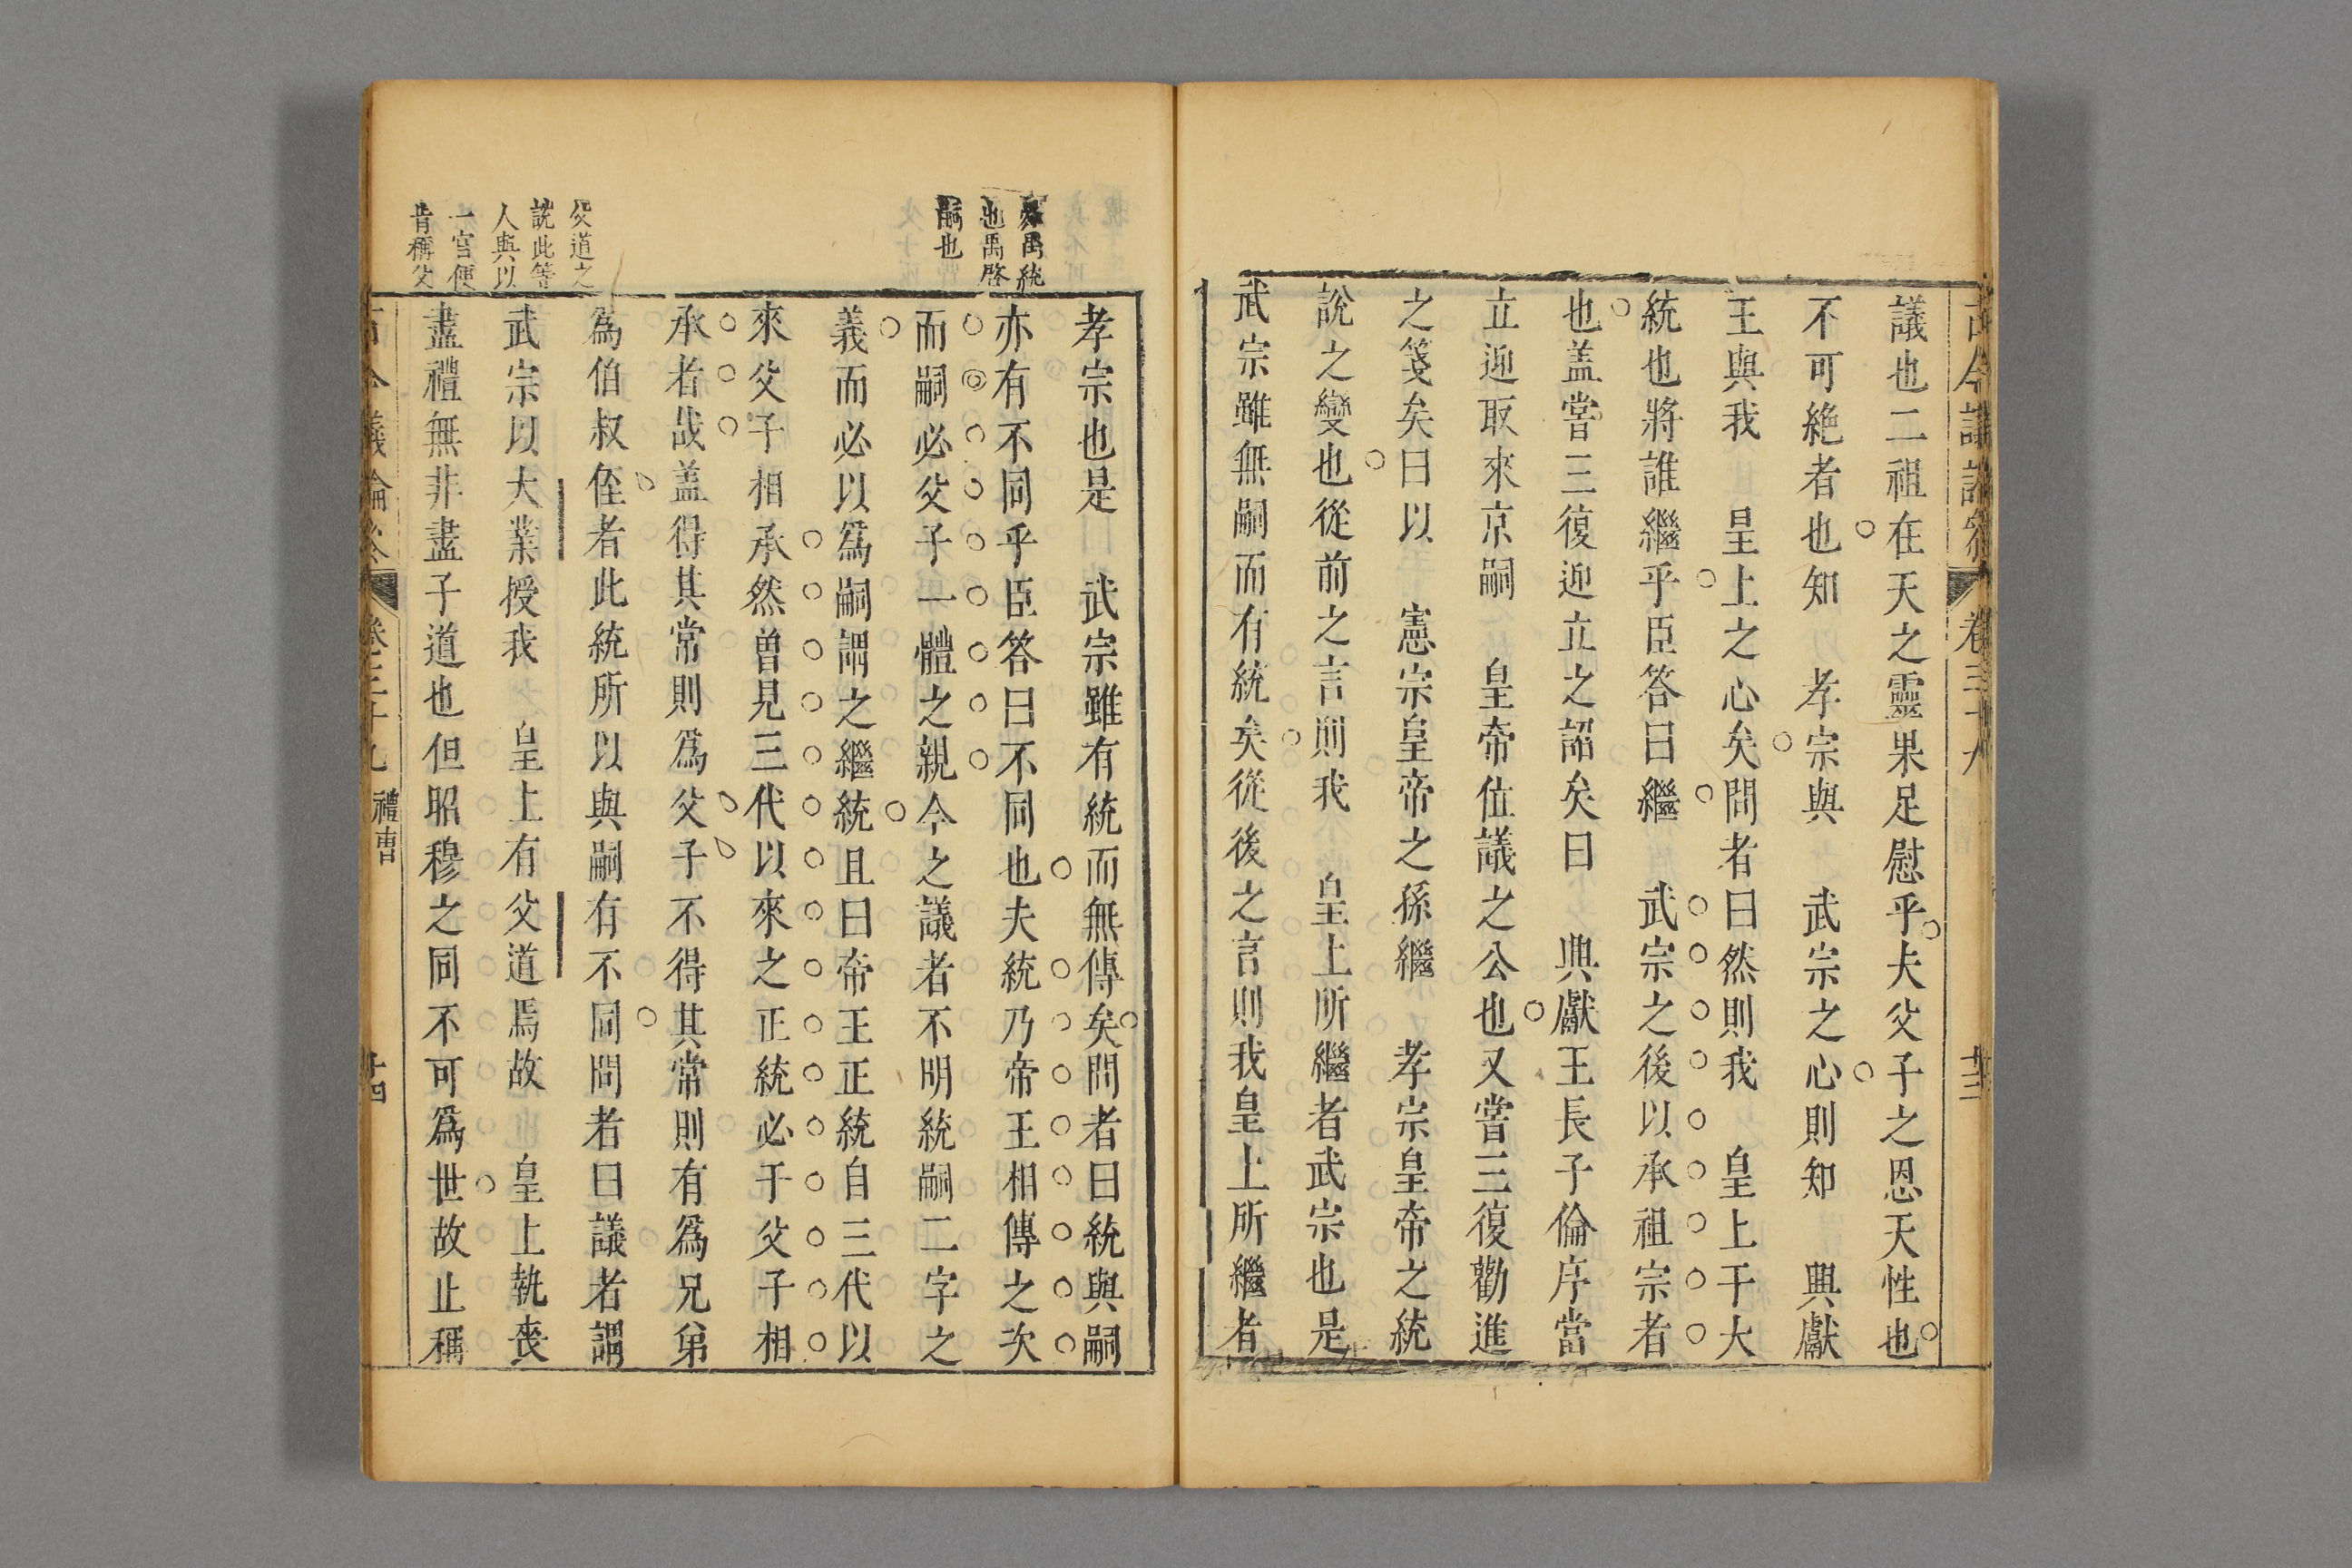 議也二祖在天之靈果足慰乎夫父子之恩天性也
不可絕者也知　孝宗與　武宗之心則知　興獻
王與我　皇上之心矣問者曰然則我　皇上于大
統也將誰繼乎臣答曰繼　武宗之後以承祖宗者
也盖嘗三復迎立之詔矣曰　興獻王長子倫序當
立迎取來京嗣　皇帝位議之公也又嘗三復勸進
之箋矣曰以　憲宗皇帝之孫繼　孝宗皇帝之統
說之變也從前之言則我　皇上所繼者武宗也是
武宗雖無嗣而有統矣從後之言則我皇上所繼者
孝宗也是　武宗雖有統而無傳矣問者曰統與嗣
亦有不同乎臣答曰不同也夫統乃帝王相傳之次
而嗣必父子一體之親今之議者不明統嗣二字之
義而必以爲嗣謂之繼統且曰帝王正統自三代以
來父子相承然曽見三代以來之正統必于父子相
承者哉盖得其常則爲父子不得其常則有爲兄弟
爲伯叔侄者此統所以與嗣有不同問者曰議者謂
武宗以大業授我　皇上有父道焉故　皇上執喪
盡禮無非盡子道也但昭穆之同不可爲世故止稱
禹統
也禹啓
嗣也
父道之
說此等
人與以
一官便
肯稱父
古今議論叅
卷三十九
禮曹
廿四